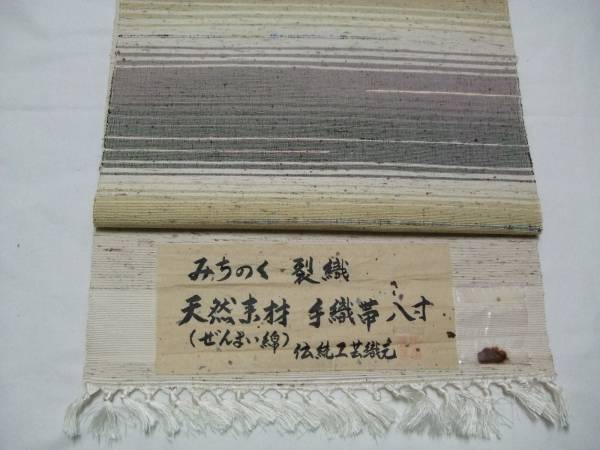 みちのく 裂織
天然素材 手織帯 八寸
(ぜんまい綿) 伝統工芸織元